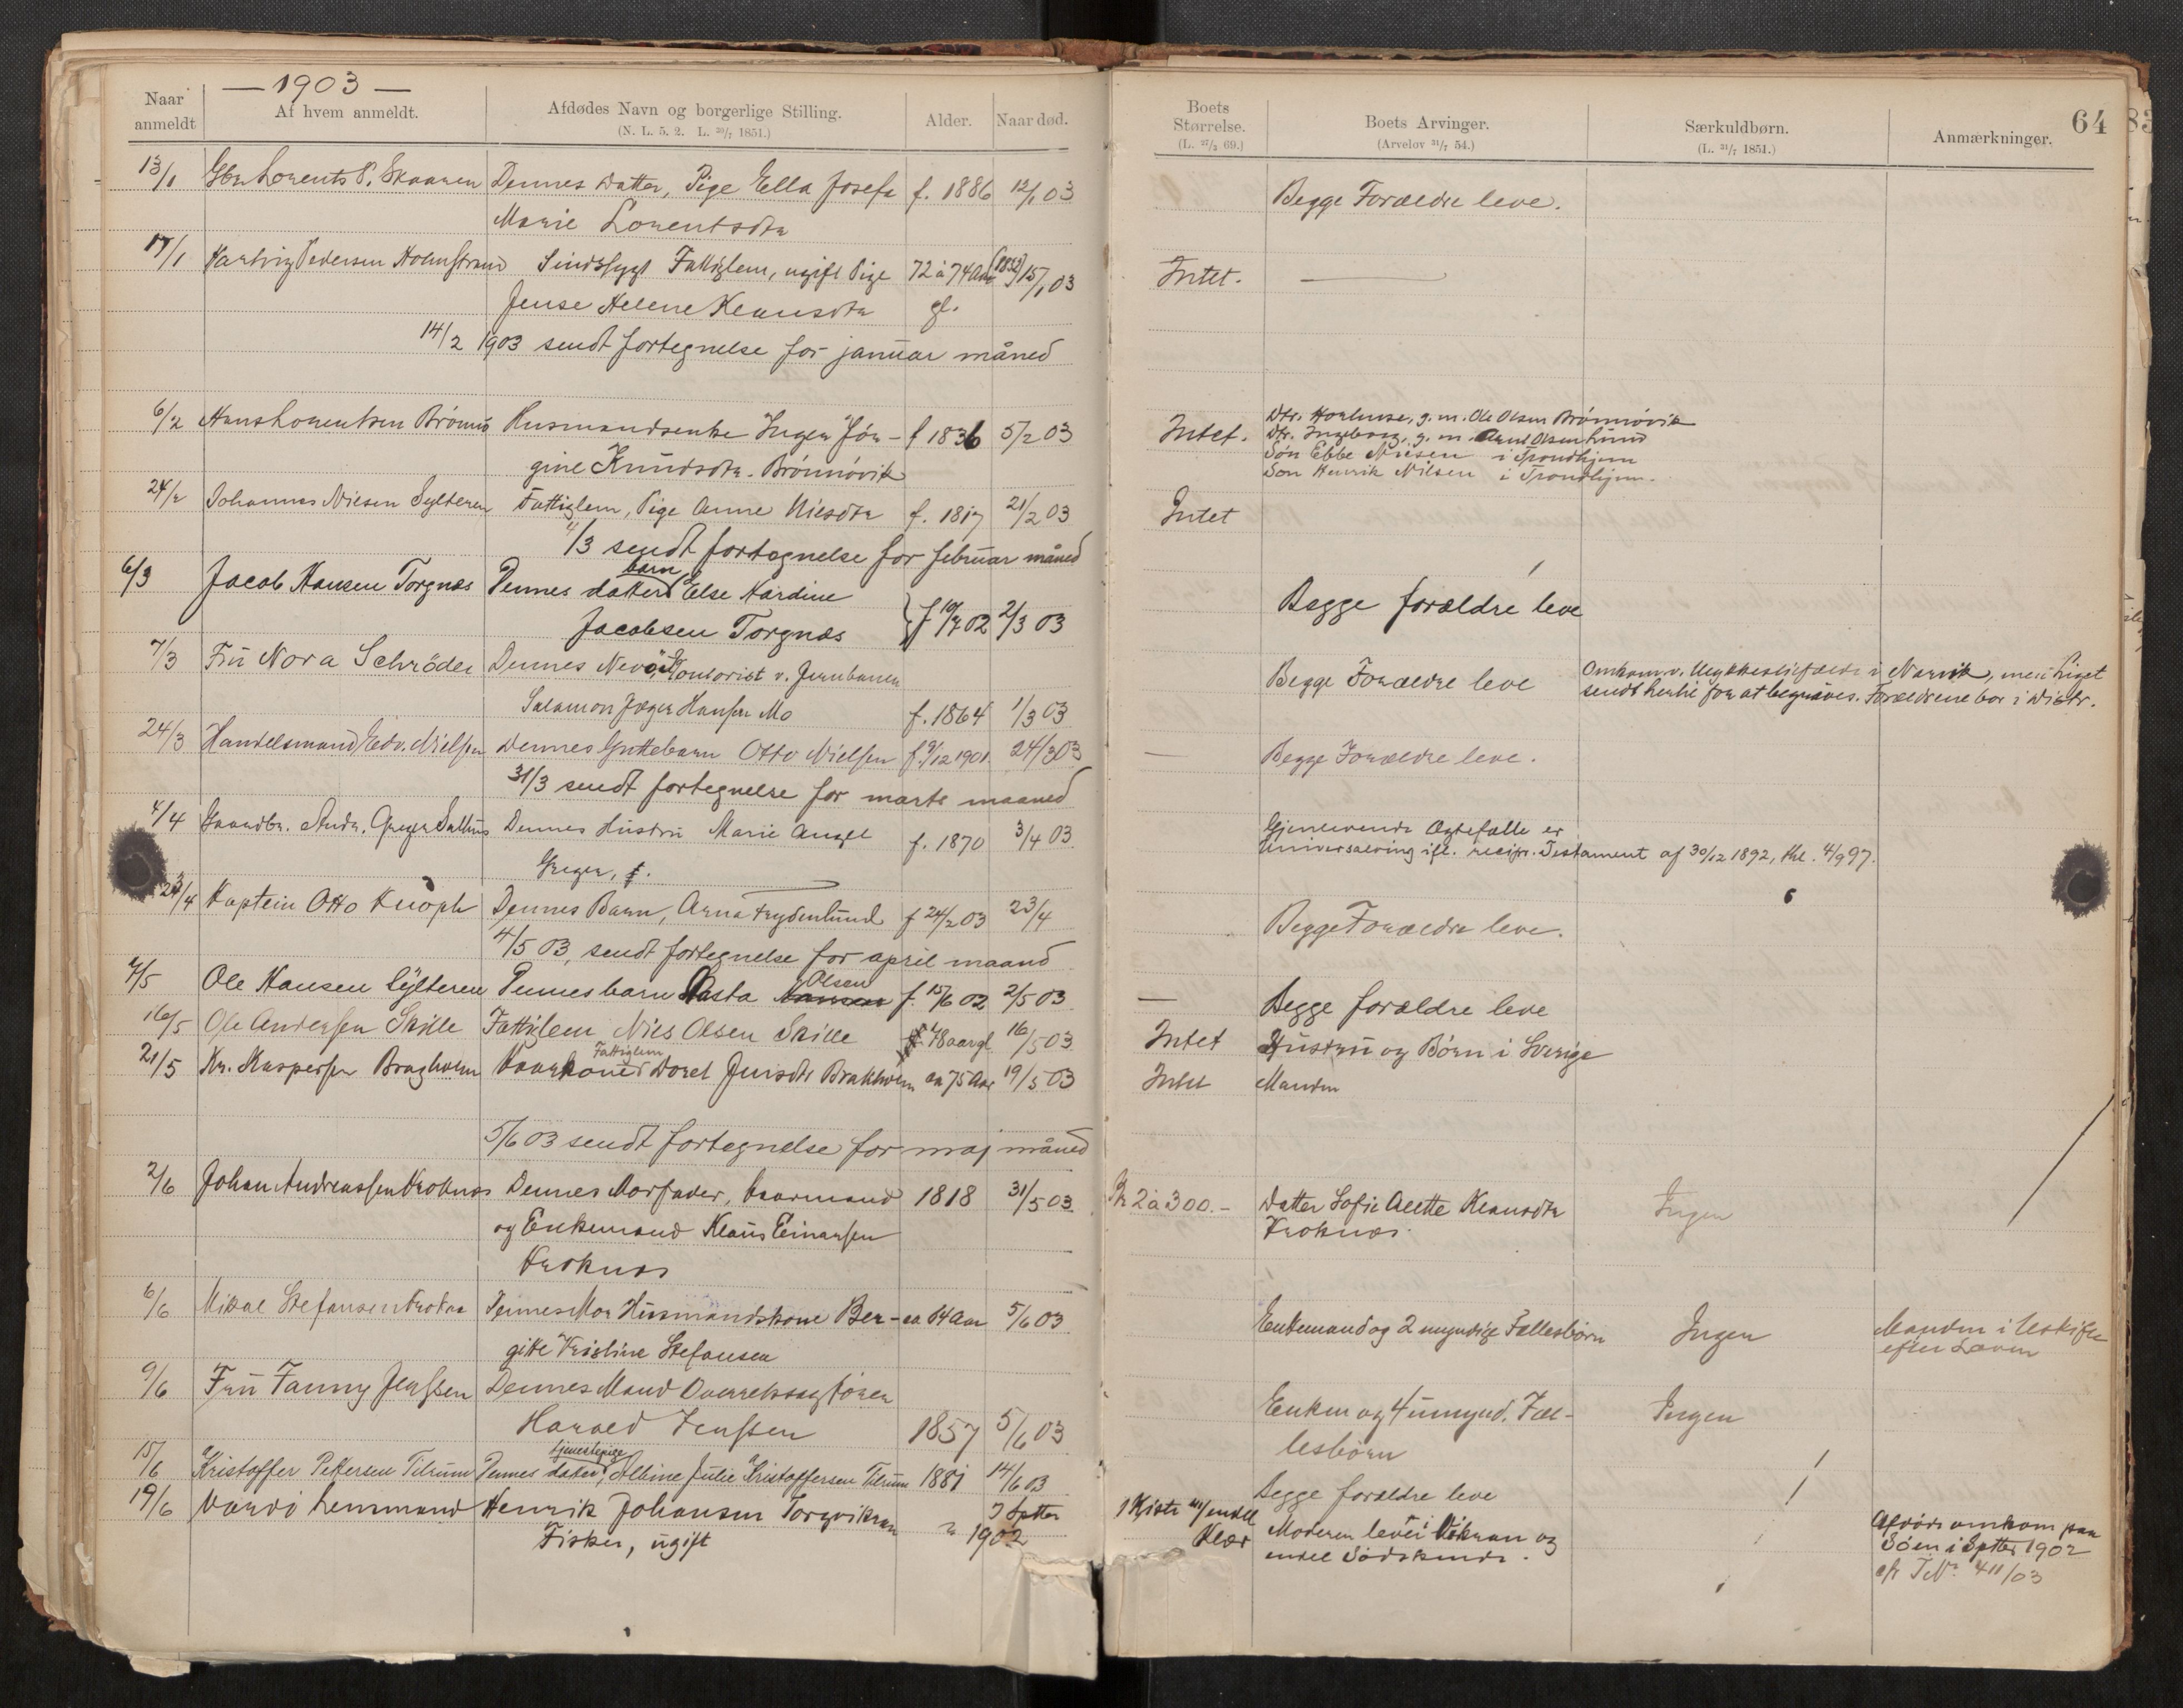 — 1903 —
Naar anmeldt
Af hvem anmeldt.
Afdødes Navn og borgerlige Stilling.
(N. L. 5. 2. L. 30/7 1851.)
Alder.
Naar død.
13/1 Lorents P. Skaanen Dennes Datter, Pige Ella Josefa f. 1886 12/1 03
Marie Lorentsdtr
17/1 Hartvig Pedersen Holmstrand Sindssygt Fattiglem, ugift Pige 72 à 74 Aar (1832) 15/1 03
Jense Helene Klausdtr gl.
14/2 1903 sendt fortegnelse for januar måned
6/2 Hans Lorentsen Husmandsenke Inger Jør- f 1836 5/2 03
gine Knudsdtr. Brönnövik
24/2 Johannes Nilsen Sylteren Fattiglem, Pige Anne Nilsdtr f. 1817 21/2 03
4/3 sendt fortegnelse for februar måned
6/3 Jacob Hansen Torgnæs Dennes datterbarn Else Hardine
Jacobsen Torgnæs f 19/7 02 2/3 03
7/3 Fru Nora Schröder Dennes Nevö, Kontorist v. Jernbanen
Salamon Jæger Hansen Mo f. 1864 1/3 03
24/3 Handelsmand Edv. Nielsen Dennes Guttebarn Otto Nielsen f. 9/12 1901 24/3 03
31/3 sendt fortegnelse for marts maaned
4/4 Gaardbr. Andr. Greger Dennes Hustru Marie Angel f. 1870 3/4 03
Greger, f.
24/4 Kaptein Otto Knoph Dennes Barn, Arna Frydenlund f 24/2 03 23/4
4/5 03, sendt fortegnelse for april maaned
7/5 Ole Hansen Sylteren Dennes barn Aasta Hansen Olsen f. 15/6 02 2/5 03
16/5 Ole Andersen Skille Fattiglem Niels Olsen Skille 48 aar gl 16/5 03
21/5 Kr. Kaspersen Bragholm Kaarkone Fattiglem Doret Jensdtr Brakholm ca 75 Aar 19/5 03
5/6 03 sendt fortegnelse for maj måned
2/6 Johan Andreassen Kroknæs Dennes Morfader, Kaarmand 1818 31/5 03
og Enkemand Klaus Einarsen
Kroknæs
6/6 Mikal Stefansen Dennes Mor Husmandskone Ber- ca 64 Aar 5/6 03
gitte Kristine Stefansen
9/6 Fru Fanny Jenssen Dennes Mand Overretssagfører
Harald Jenssen 1857 5/6 03
15/6 Kristoffer Pettersen Tilrum Dennes datter, tjenestepige Albine Julie Kristoffersen Tilrum 1881 14/6 03
19/6 Lensmand Henrik Johansen Torgvikran
Fisker, ugift I Septbr 1902
Boets Størrelse.
(L. 27/3 69.)
Boets Arvinger.
(Arvelov 31/7 54.)
Særkuldbørn.
(L. 31/7 1851.)
Anmærkninger.
64
Begge Forældre leve.
Intet. —
Intet. Dtr. g. m. Ole Olsen Brönnövik
Dtr. Ingeborg, g. m. Olsen Lund
Søn Ebbe Nilsen i Trondhjem
Søn Henrik Nilsen i Trondhjem.
Intet
Begge forældre leve
Begge Forældre leve Omkom v. Ulykkestilfælde i Narvik, men Liget
sendt hertil for at begraves. Forældrene bor i Distr.
— Begge Forældre leve.
Gjenlevende Ægtefælle er
Universalarving ifl. recipr. Testament af 30/12 1892, thl. 4/9 97.
Begge Forældre leve.
— Begge forældre leve
Intet Hustru og Börn i Sverige
Intet Manden
Kr 2 à 300.- Datter Sofie Alette Klausdtr Ingen
Kroknæs.
Enkemand og 2 myndige Fællesbörn Ingen Manden i Uskifte
efter Loven
Enken og 4 umynd. Fæl- Ingen
lesbörn
Begge forældre leve
1 Kiste m/ endel
Klær Moderen lever i Vikran og
endel Södskende.
Afdöde omkom paa
Söen i Septbr 1902
cfr J. № 411/03